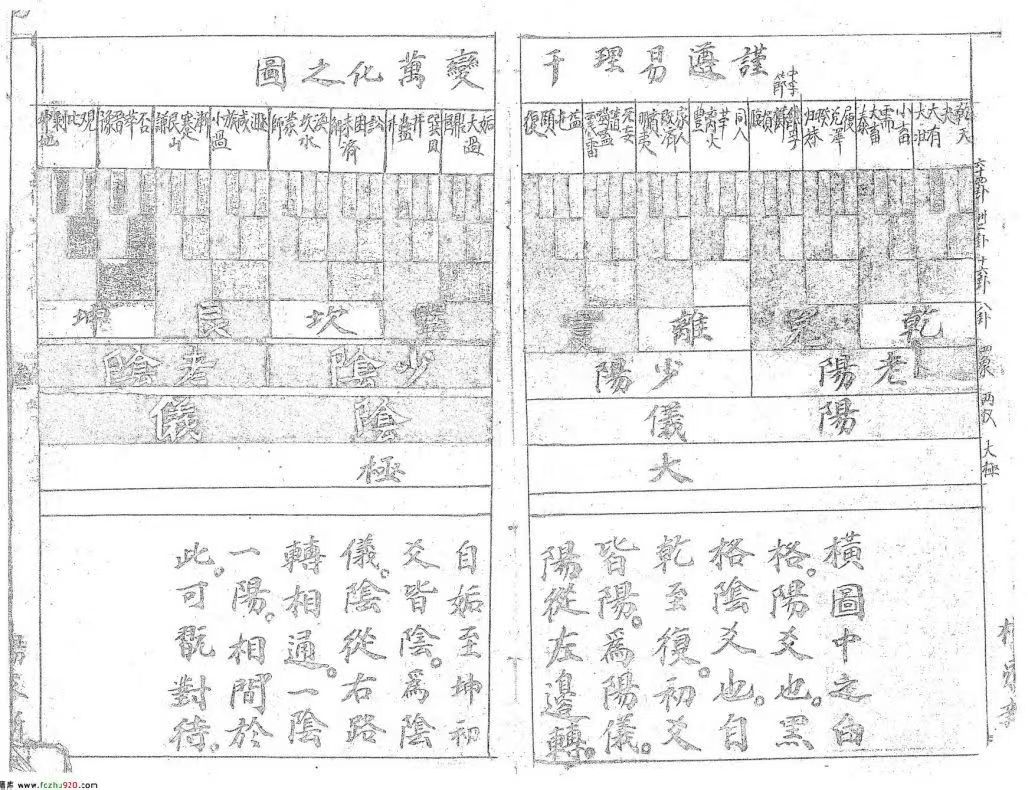 謹遵易理千
變萬化之圖
中孚節
乾天
夬
大有
大壯
小畜
需
大畜
泰
履
兌澤
睽
归妹
損
臨
同人
革
離火
豐
家人
既濟
賁
明夷
无妄
隨
噬嗑
震雷
益
屯
頤
復
姤
大過
鼎
恒
巽風
井
蠱
升
訟
困
未濟
解
渙
坎水
蒙
師
遯
咸
旅
小過
漸
蹇
艮山
謙
否
萃
晋
豫
觀
比
剝
坤地
六十四卦 卅二卦 十六卦 八卦 四象 两仪 大極
乾
兌
離
震
巽
坎
艮
坤
老陽
少陽
少陰
老陰
陽儀
陰儀
大極
橫圖中之白
格。陽爻也。黑
格陰爻也。自
乾至復。初爻
皆陽。為陽儀。
陽從左邊轉。
自姤至坤初
爻皆陰。為陰
儀。陰從右路
轉相通。一陰
一陽。相間於
此。可翫對待。
www.fczhu920.com